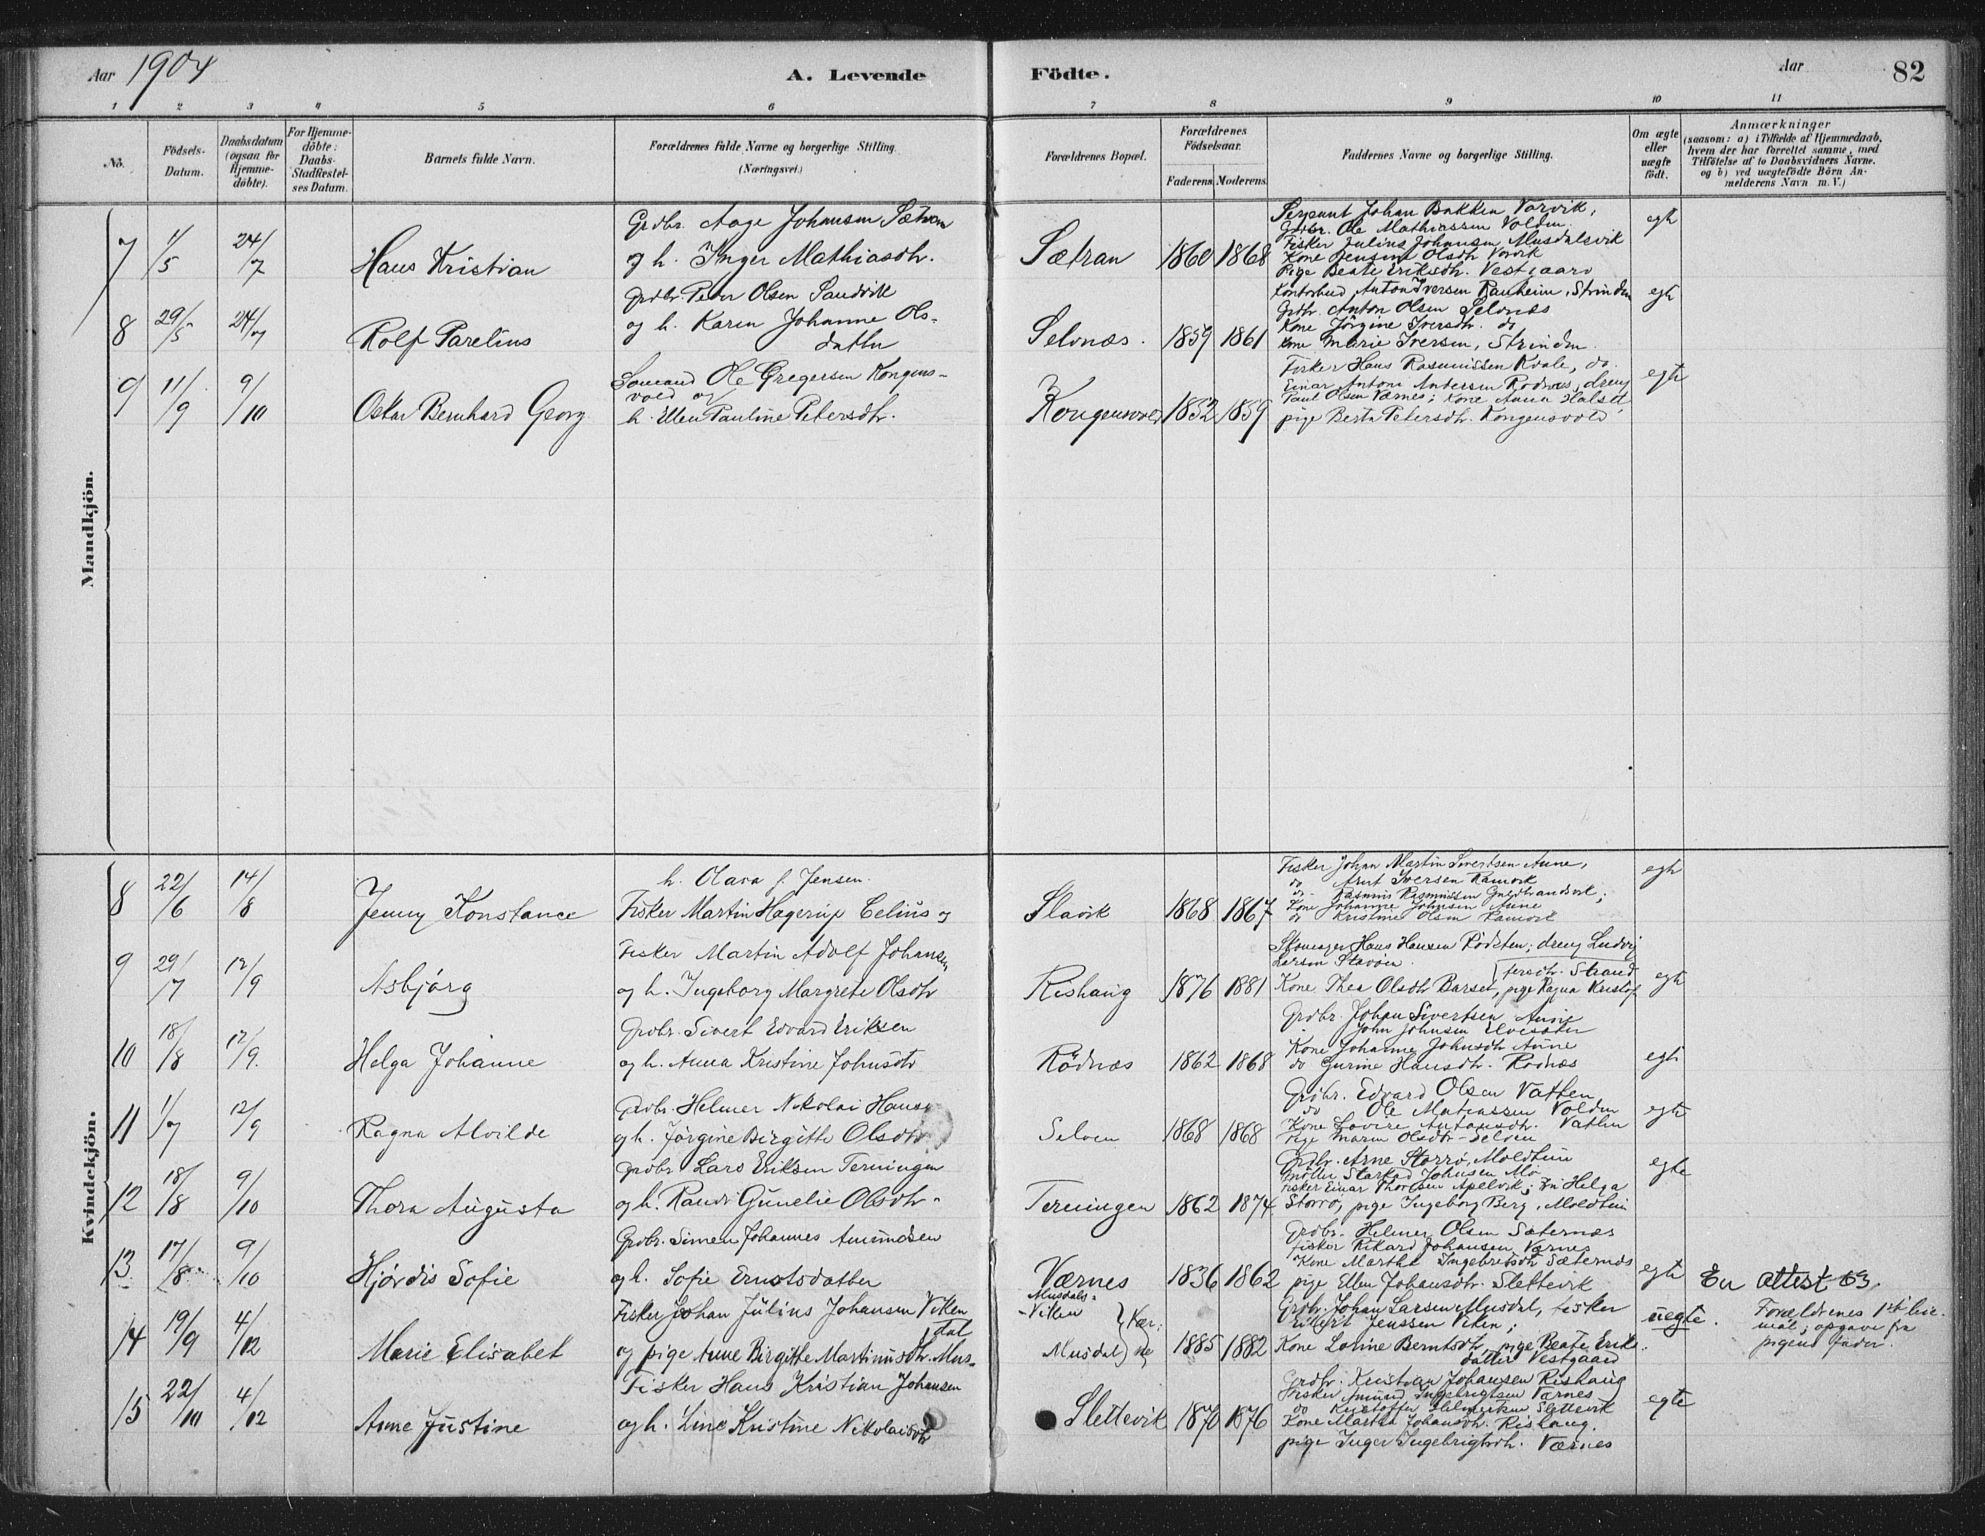 Aar 1904 A. Levende Födte. Aar 82
1 2 3 4 5 6 7 8 9 10 11
No.
Födsels-Datum.
Daabsdatum (ogsaa for Hjemme-döbte).
For Hjemme-döbte: Daabs-Stadfæstel-ses Datum.
Barnets fulde Navn.
Forældrenes fulde Navne og borgerlige Stilling. (Næringsvei.)
Forældrenes Bopæl.
Forældrenes Födselsaar. Faderens. Moderens.
Faddernes Navne og borgerlige Stilling.
Om ægte eller uægte födt.
Anmærkninger
(saasom: a) i Tilfælde af Hjemmedaab,
hvem der har forrettet samme, med
Tilföielse af to Daabsvidners Navne.
og b) ved uægtefödte Börn An-
melderens Navn m. V.)
Mandkjön.
7 1/5 24/7 Hans Kristian
Grdbr. Aage Johansen Sætran
og h. Inger Mathiasdtr.
Sætran 1860 1868
Sersjant Johan Bakken, Vorvik,
Grdbr. Ole Mathiassen Volden
Fisker Julius Johansen Musdalsvik
Kone Jensine Olsdtr Vorvik
Pige Beate Eriksdtr. Vestgaard
egte
8 29/5 24/7 Rolf Parelius
Grdbr. Peter Olsen Sandvik
og h. Karen Johanne Ols-
datter
Selvnæs. 1859 1861
Anton Iversen Ranheim, Strinden
Grdbr. Anton Olsen Selvnæs
Kone Jörgine Iversdtr. do
Kone Marie Iversen, Strinden.
egte
9 11/9 9/10 Oskar Bernhard Georg
Ole Gregersen Kongens-
vold og
h. Ellen Pauline Petersdtr.
Kongensvold 1852 1859
Fisker Hans Rasmussen Kvale, do.
Einar Antoni Andersen Rodnæs, dreng
Paul Olsen Værnes; Kone Anna Holseth,
pige Berta Petersdtr. Kongensvold
egte
Kvindekjön.
8 22/6 14/8 Jenny Konstance
h. Olava f. Jensen.
Fisker Martin Hagerup Celius og
Slavik 1868 1867
Fisker Johan Martin Sivertsen Aune,
do Arnt Iversen Ramvik
do Rasmus Rasmussen
Kone Johanne Johnsen Aune
do Kristine Olsen Ramvik
egte
9 29/7 12/9 Asbjørg
Fisker Martin Adolf Johansen
og h. Ingeborg Margrete Olsdtr
Rishaug 1876 1881
Skomager Hans Hansen Rödsten; dreng Ludvig
Larsen Stavöen.
fersdtr. Strand
Kone Thea Olsdtr Barset, pige Ragna Kristof-
egte
10 18/8 12/9. Helga Johanne
Grdbr. Sivert Edvard Eriksen
og h. Anna Kristine Johnsdtr
Rödnæs 1862 1868
Grdbr. Johan Sivertsen Aune
John Johnsen
Kone Johanne Johnsdtr Aune
do Gurine Hansdtr. Rodnæs
egte
11 1/7 12/9 Ragna Alvilde
Grdbr. Helmer Nikolai Hansen
og h. Jörgine Birgitte Olsdtr
Selven 1868 1868
Grdbr. Edvard Olsen Vatten
do Ole Matiassen Volden
Kone Lovise Antonsdtr. Vatten
Pige Maren Olsdtr - Selven
egte
12 18/8 9/10 Thora Augusta
Grdbr Lars Eriksen Terningen
og h. Randi Gunelie Olsdtr.
Terningen 1862 1874.
Grdbr. Arne Storrö, Moldtun
Möller Starkad Johnsen Mo
Fisker Einar Thoresen Apelvik; Helga
Storrö, pige Ingeborg Berg, Moldtun
egte
13 17/8 9/10 Hjördis Sofie
Grdbr. Simen Johannes Amundsen
og h. Sofie Ernstsdatter
Værnes 1836 1862
Grdbr. Helmer Olsen Sæternæs
fisker Rikard Johansen Værnes
Kone Martha Ingebretsdtr Sæternæs
pige Ellen Johansdtr. Slettevik
egte
En attest 63.
14 19/9 4/12 Marie Elisabet
Fisker Johan Julius Johansen Viken
dal
og pige Anne Birgitte Martinusdtr. Mus-
Musdals-
Viken
Musdal Vær-
ne
1885 1882
Grdbr. Johan Larsen Musdal, fisker
Jenssen Viken;
Kone Lovine Berntsdtr, pige Beate Eriks-
datter Vestgaard
uegte.
Forældrenes 1ste leie-
mål; opgave fra
pigens fader.
15 22/10 4/12 Anne Justine
Fisker Hans Kristian Johansen
og h. Line Kristine Nikolaisdtr
Slettevik 1870 1876
Grdbr. Kristian Johansen Rishaug
Fisker Amund Ingebrigtsen Værnes
do Kristoffer Slettevik
Kone Martha Johansdtr. Rishaug.
pige Inger Ingebrigtsdtr. Værnes
egte